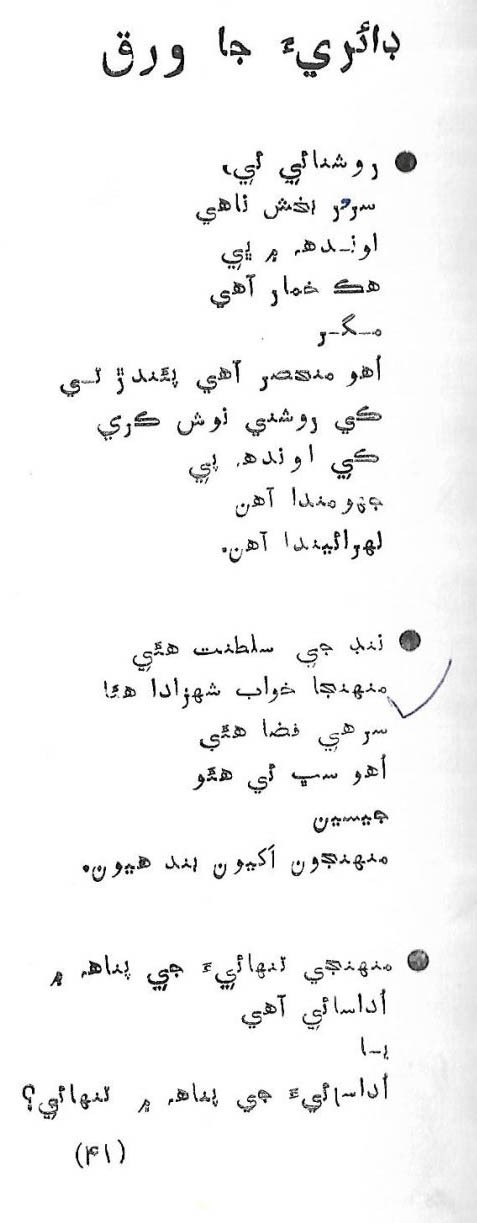 ڊائريءَ جا ورق
● روشنائي ئي،
سرور بخش ناهي
اونـدهہ ۾ پي
هڪ خمار آهي
مـگـر
اهو منحصر آهي پيئندڙ تـي
ڪي روشني نوش ڪري
ڪي اوندهہ پي
جهومندا آهن
لهرائيندا آهن.
● ننڊ جي سلطنت هئي
منهنجا خواب شهزادا هئا
سرهي فضا هئي
اُهو سڀ ئي هئو
جيسين
منهنجون اکيون بند هيون.
● منهنجي تنهائيءَ جي پناهہ ۾
اُداسائي آهي
يـا
اُداسائيءَ جي پناهہ ۾ تنهائي؟
(۴۱)